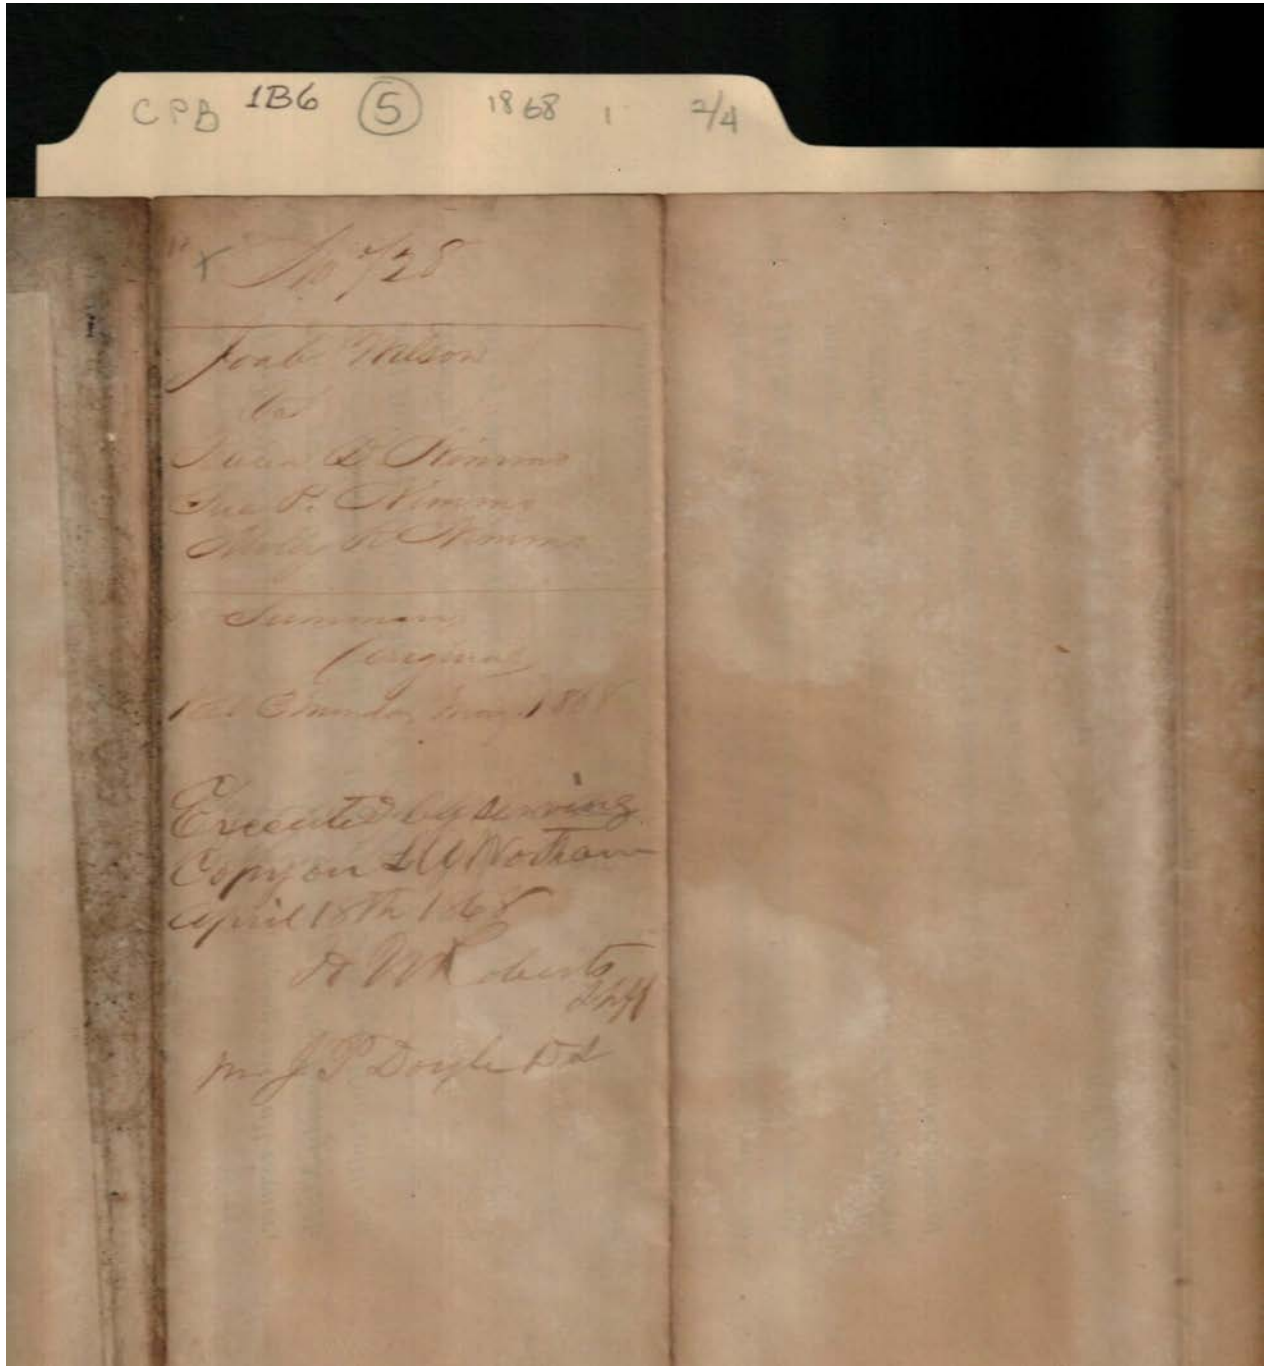 CPB 1B6 5 1868 1 2/4
No 728
Wilson
vs
Nimms
Sue P. Nimms
Molly Nimms
Summons
Original
Monday May 1868
Executed by serving
Copy on
April 18th 1868
Roberts
Shff
J P Doyle D S